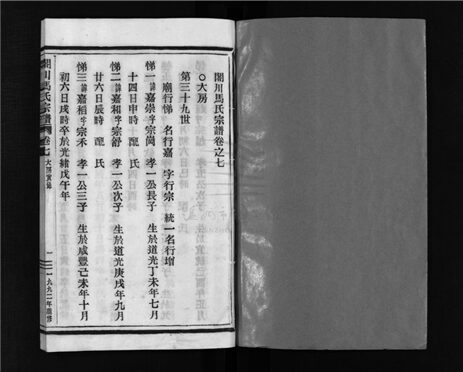 閣川馬氏宗譜卷之七
○大房
第三十九世
廟行悌 名行嘉 字行宗 統一名行增
悌一諱嘉崇字宗岡 孝一公長子 生於道光丁未年七月
十四日申時 配 氏
悌二諱嘉和字宗舒 孝一公次子 生於道光庚戌年九月
廿六日辰時 配 氏
悌三諱嘉稻字宗禾 孝一公三子 生於咸豐己未年十月
初六日戌時卒於光緒戊午年
閣川馬氏宗譜 卷七 大房實錄 一 一九九二年重修